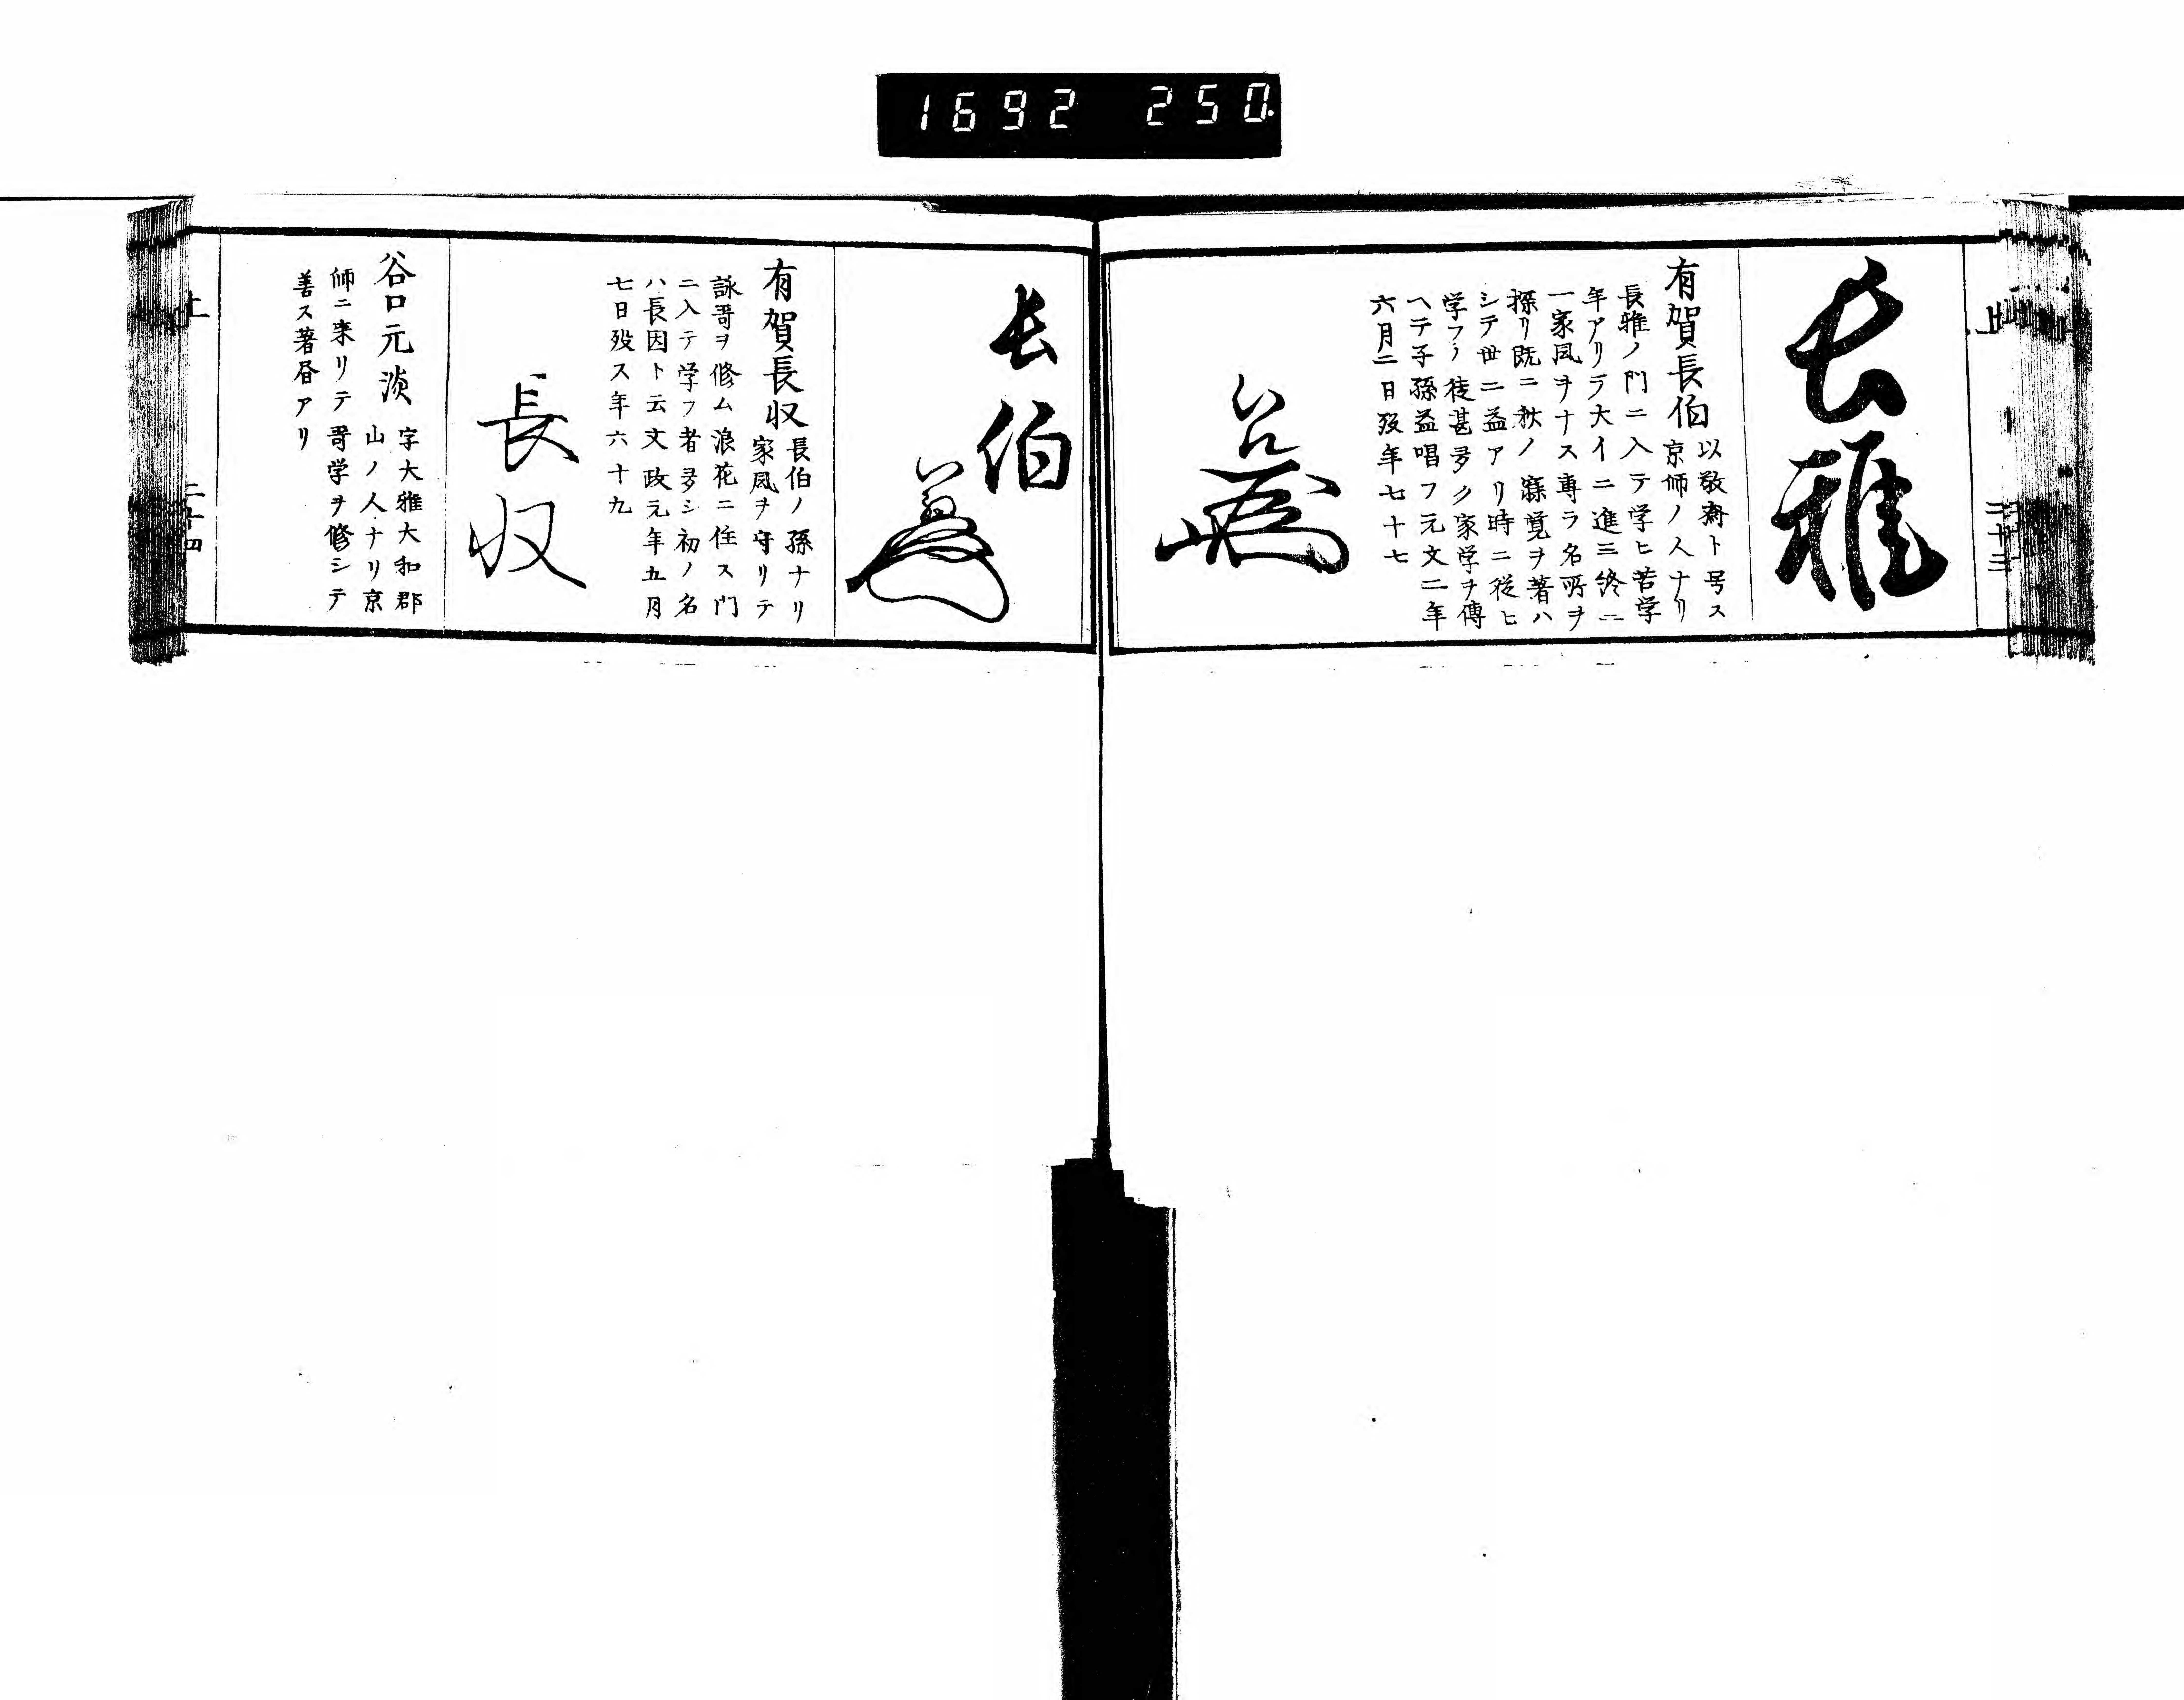 1692 250
上
二十三
長雅
有賀長伯
以敬斎ト号ス
京師ノ人ナリ
長雅ノ門ニ入テ学ヒ苦学
年アリテ大イニ進ミ終ニ
一家風ヲナス専ラ名所ヲ
探リ既ニ秋ノ寐覚ヲ著ハ
シテ世ニ益アリ時ニ従ヒ
学フノ徒甚多ク家学ヲ傳
ヘテ子孫益唱フ元文二年
六月二日歿年七十七
長伯
有賀長収
長伯ノ孫ナリ
家風ヲ守リテ
詠哥ヲ修ム浪花ニ住ス門
ニ入テ学フ者多シ初ノ名
ハ長因ト云文政元年五月
七日歿ス年六十九
長収
谷口元淡
字大雅大和郡
山ノ人ナリ京
師ニ来リテ哥学ヲ修シテ
善ス著昏アリ
上
二十四